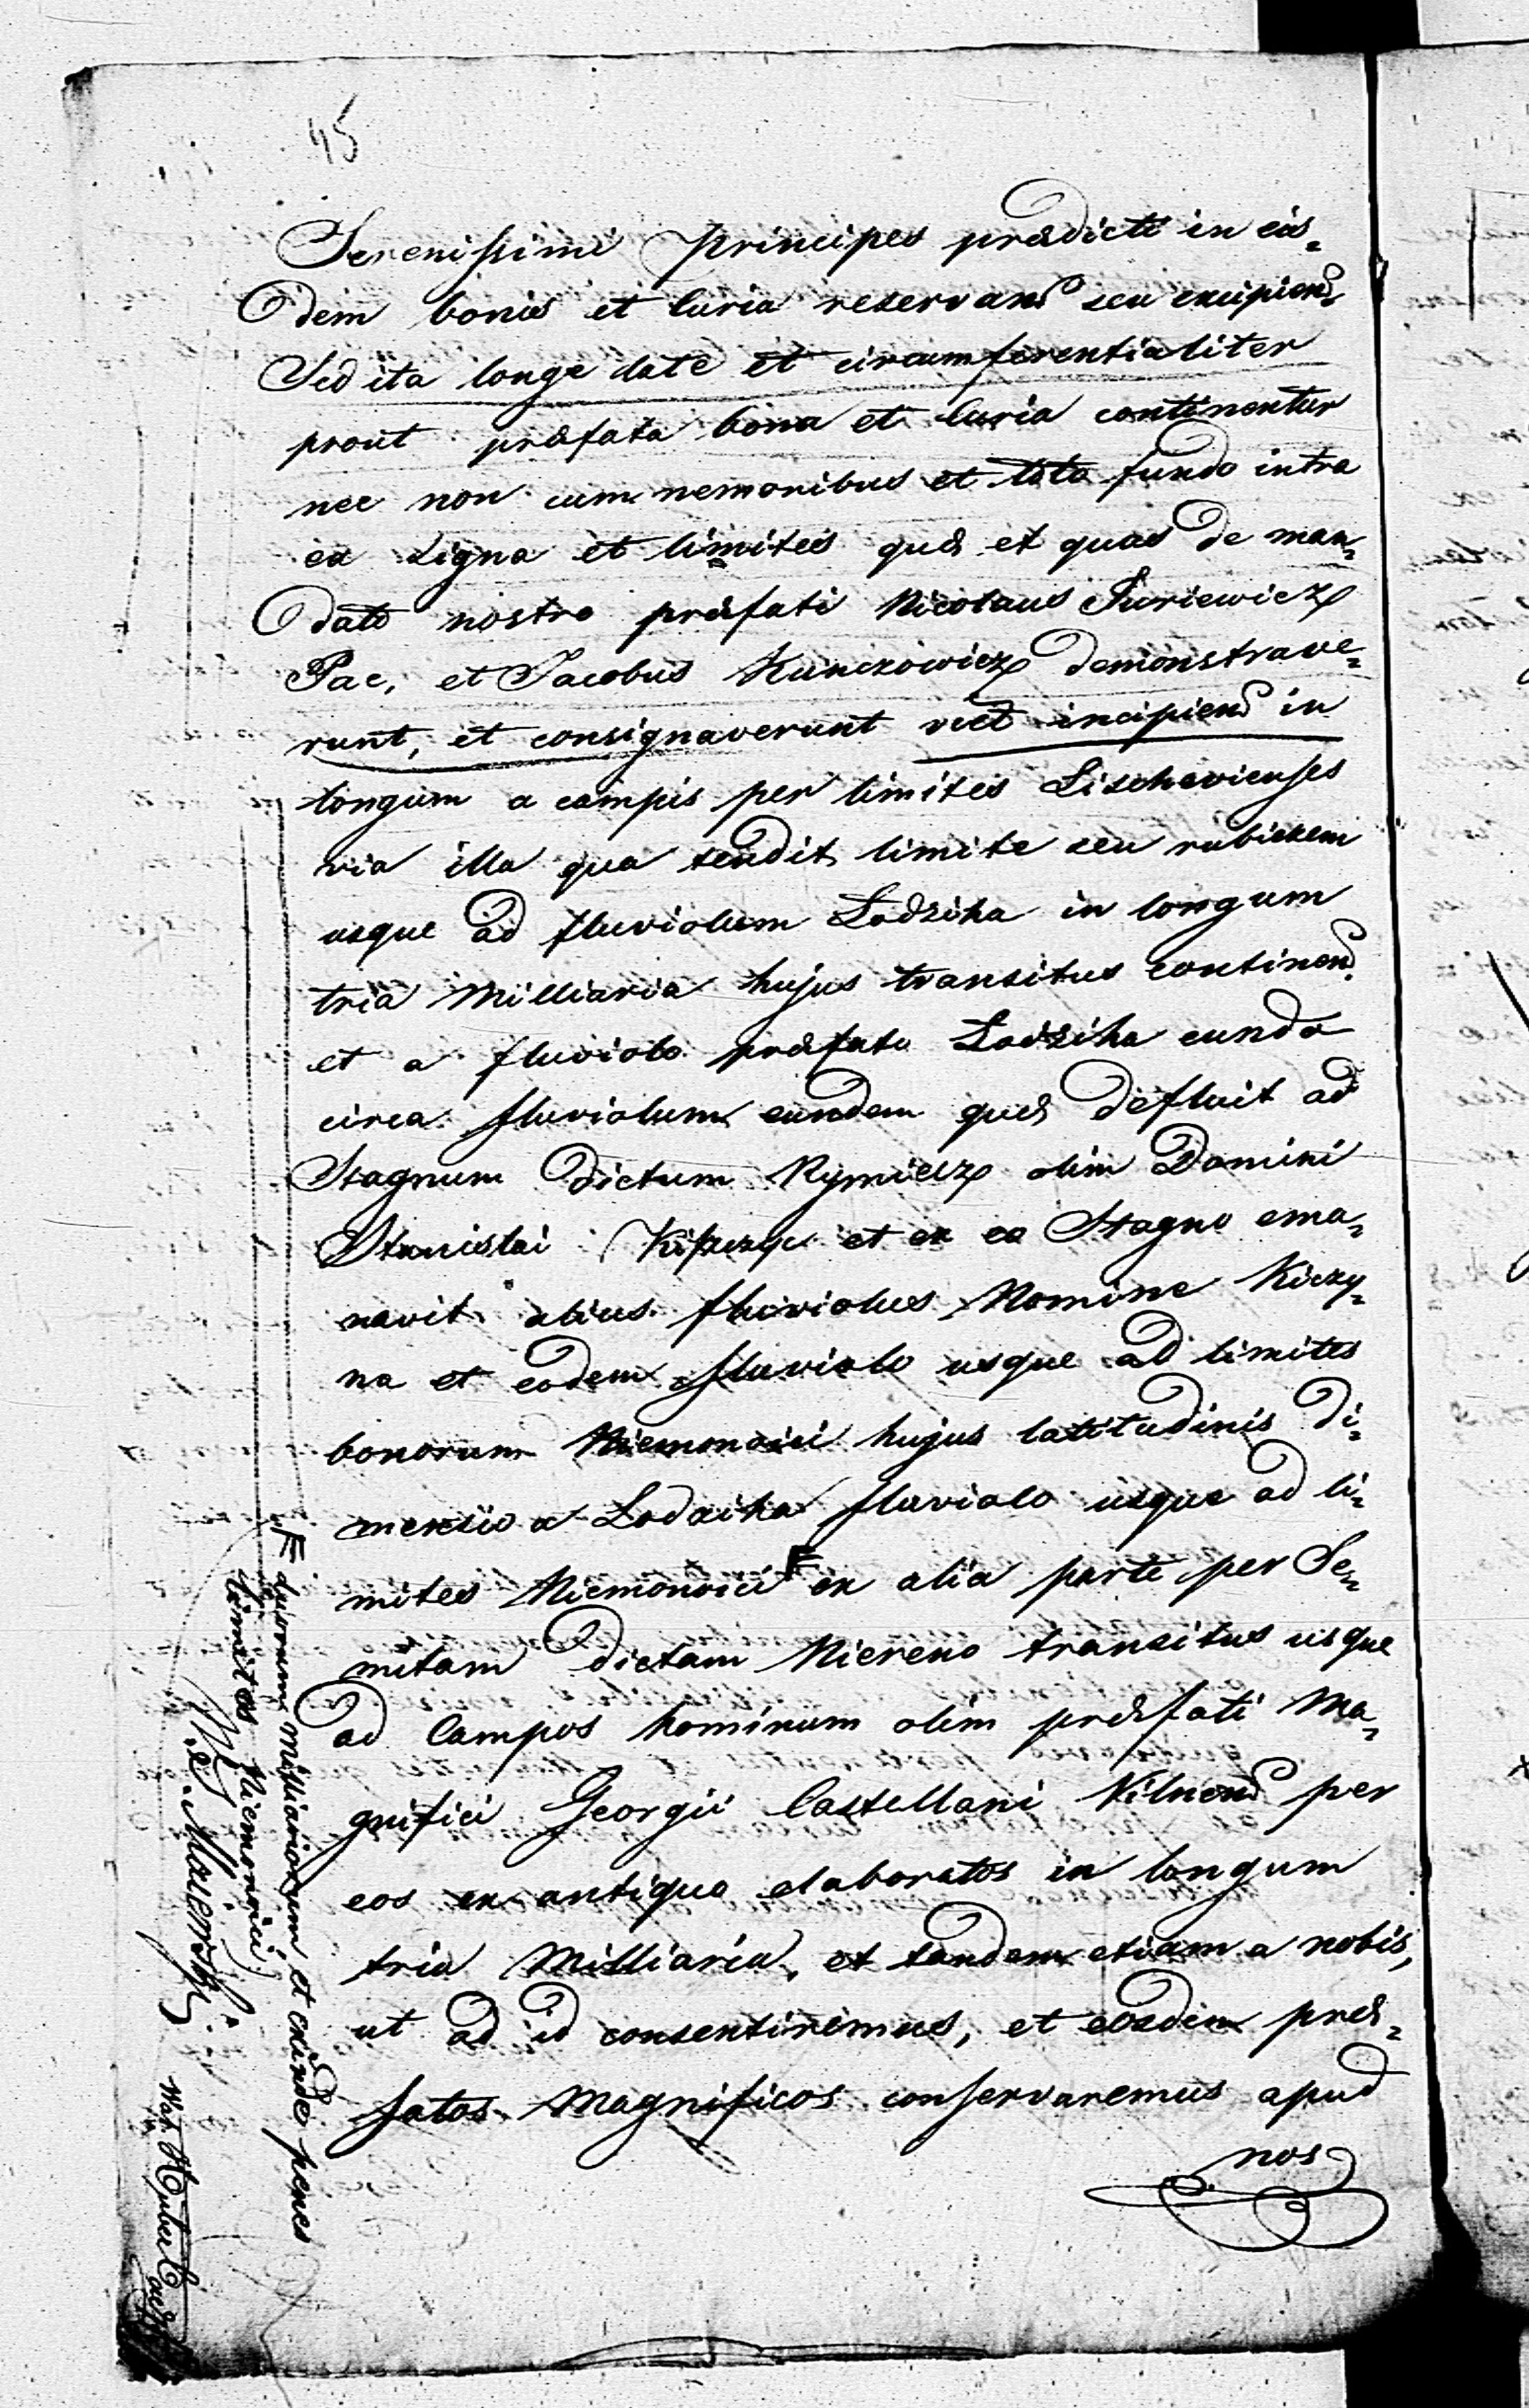 45
Serenissimi Principes prædicti in eis=
dem bonis et Curia reservand seu excipiend
Sed ita longe late et circumferentialiter
prout præfata bona et Curia continentur
nec non cum nemoribus et toto fundo intra
ea signa et limites quæ et quas de man=
dato nostro præfati Nicolaus Juriewicz
Pac, et Jacobus Kunczowicz demonstrave=
runt, et consignaverunt vict incipiend in
longum a campis per limites Lischovienses
via illa qua tendit limite seu rubiezem
usque ad fluviolum Lodziha in longum
tria Milliaria hujus transitus continend.
et a fluviolo præfato Lodziha eundo
circa fluviolum eundem quæ defluit ad
Stagnum dictum Rymiecz olim Domini
Stanislai et ex eo Stagno ema=
navit alius fluviolus Nomine Kiczy=
na et eodem fluviolo usque ad limites
bonorum Niemonoici hujus latitudinis di=
mensio a Lodziha fluviolo usque ad li=
mites Niemonoici F ex alia parte per Se=
mitam dictam Niereno transitus usque
ad Campos hominum olim præfati Ma=
gnifici Georgii Castellani Vilnend per
eos ex antiquo elaboratos in longum
tria Milliaria, et tandem etiam a nobis,
ut ad id consentiremus, et eosdem præ=
fatos Magnificos conservaremus apud
nos
F duorum Milliariorum, et exinde penes
limites Niemonoici